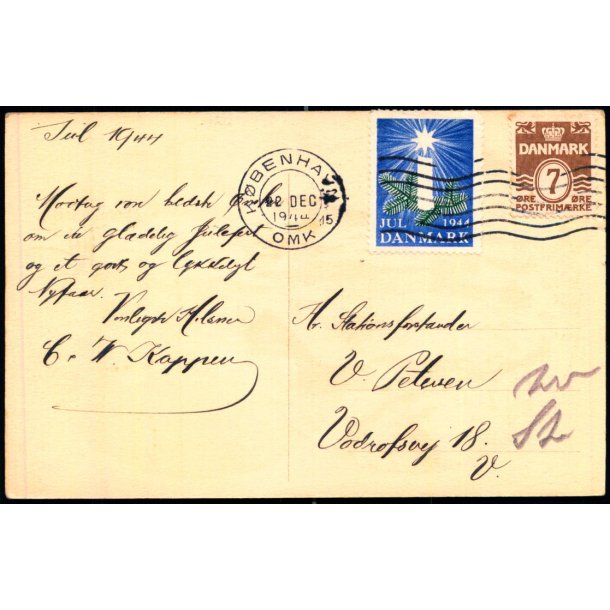 Jul 1944
Modtag vor bedste Ønske
om en glædelig Julefest
og et godt og lykkeligt
Nytaar.
Venligste Hilsner
C. W Koppen
KØBENHAVN
22 DEC
1944 15
OMK
JUL 1944
DANMARK
DANMARK
7
ØRE ØRE
POSTFRIMÆRKE
Hr. Stationsforstander
V. Petersen
Vodrofsvej 18.
V.